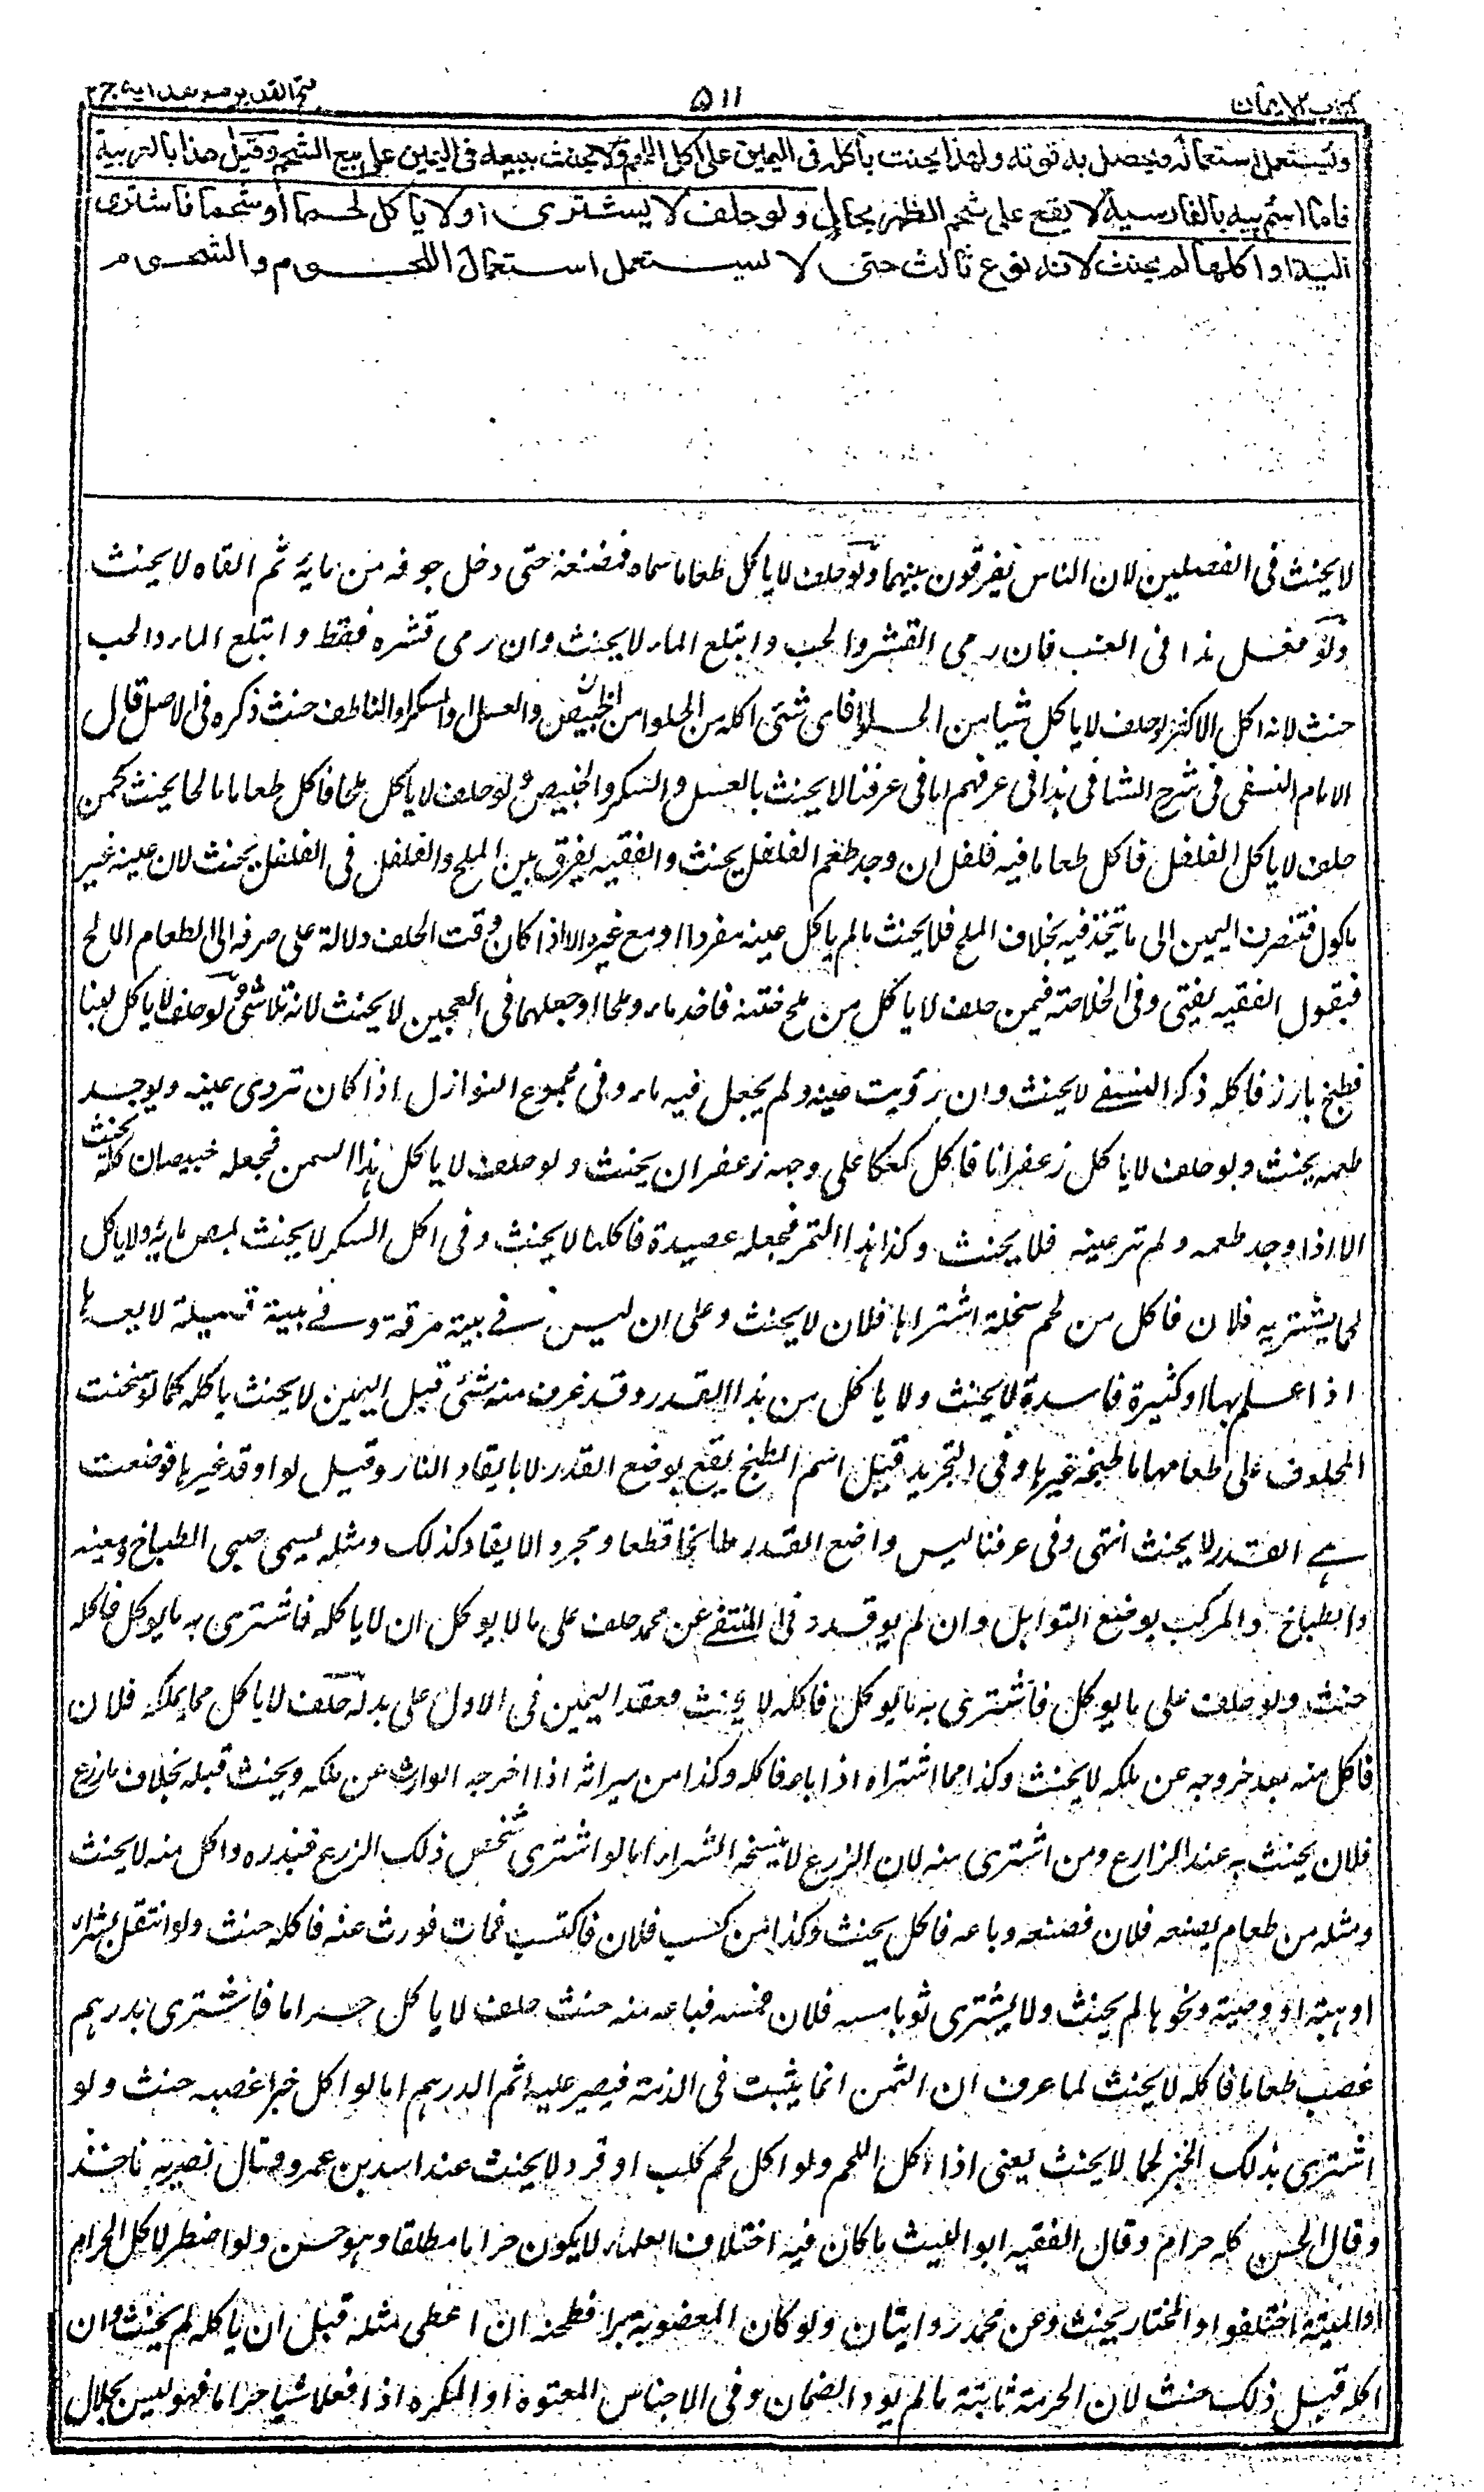 كتاب الايمان
٥١١
فتح القدير مع هداية ج٢
ويستعمل استعماله ويحصل به قوته ولهذا يحنث بأكله فى اليمين على اكل اللحم ولا يحنث ببيعه فى اليمين على بيع الشحم وقيل هذا بالعربية
فاما اسم پيه بالفارسية لا يقع على شحم الظهر بحال ولو حلف لا يشترى اولا ياكل لحما أو شحما فاشترى
الية او اكلها لم يحنث لانه نوع ثالث حتى لا يستعمل استعمال اللحوم والشحوم
لا يحنث فى الفصلين لان الناس يفرقون بينهما ولو حلف لا ياكل طعاما سماه فمضغه حتى دخل جوفه من مائه ثم القاه لا يحنث
ولو فعل هذا فى العنب فان رمى القشر والحب وابتلع الماء لا يحنث وان رمى قشره فقط وابتلع الماء والحب
حنث لانه اكل الاكثر لو حلف لا ياكل شيا من الحلوا فاى شئى اكله من الحلوا من الخبيص والعسل او السكر او الناطف حنث ذكره فى الاصل قال
الامام النسفى فى شرح الشافى هذا فى عرفهم اما فى عرفنا لا يحنث بالعسل والسكر والخبيص ولو حلف لا ياكل ملحا فاكل طعاما مالحا يحنث كمن
حلف لا ياكل الفلفل فاكل طعاما فيه فلفل ان وجد طعم الفلفل يحنث والفقيه يفرق بين الملح والفلفل فى الفلفل يحنث لان عينه غير
ماكول فتنصرف اليمين الى ما يتخذ فيه بخلاف الملح فلا يحنث ما لم ياكل عينه مفردا او مع غيره الا اذا كان وقت الحلف دلالة على صرفه الى الطعام المالح
فبقول الفقيه يفتى وفى الخلاصة فيمن حلف لا ياكل من ملح ختنه فاخذ ماء وملحا او جعلهما فى العجين لا يحنث لانه تلاشى ولو حلف لا ياكل لبنا
فطبخ بارز فاكله ذكر النسفے لا يحنث وان رؤيت عينه ولم يجعل فيه ماء وفى مجموع النوازل اذا كان تروى عينه ويوجد
طعمه يحنث ولو حلف لا ياكل زعفرانا فاكل كعكا على وجهه زعفران يحنث ولو حلف لا ياكل هذا السمن فجعله خبيصا ان اكله يحنث
الا اذا وجد طعمه ولم تر عينه فلا يحنث وكذا هذا التمر فجعله عصيدة فاكلها لا يحنث وفى اكل السكر لا يحنث بمص مائه ولا ياكل
لحما يشتريه فلان فاكل من لحم سخلة اشتراها فلان لا يحنث وعلى ان ليس فے بيته مرقة وفے بيته قليلة لا يعبأ بها
اذا علم بها او كثيرة فاسدة لا يحنث ولا ياكل من هذا القدر وقد غرف منه شئى قبل اليمين لا يحنث باكله كما لو سخنت
المحلوف على طعامها ما طبخه غيرها وفى التجريد قيل اسم الطبخ يقع بوضع القدر لا بايقاد النار وقيل لو اوقد غيرها فوضعت
هے القدر لا يحنث انتهى وفى عرفنا ليس واضع القدر طابخا قطعا ومجرد الايقاد كذلك ومثله يسمى صبى الطباخ ومعينه
والطباخ والمركب بوضع التوابل وان لم يوقد وفى المنتقے عن محمد حلف على ما لا يوكل ان لا ياكله فاشترى به ما يوكل فاكله
حنث ولو حلف على ما يوكل فاشترى به ما يوكل فاكله لا يحنث فعقد اليمين فى الاول على بدله حلف لا ياكل مما يملكه فلان
فاكل منه بعد خروجه عن ملكه لا يحنث وكذا مما اشتراه اذا باعه فاكله وكذا من ميراثه اذا اخرجه الوارث عن ملكه ويحنث قبله بخلاف ما زرع
فلان يحنث به عند الزارع ومن اشترى منه لان الزرع لا ينسخه الشراء اما لو اشترى شخص ذلك الزرع فبذره واكل منه لا يحنث
ومثله من طعام يصنعه فلان فصنعه وباعه فاكل يحنث وكذا من كسب فلان فاكتسب فمات فورث عنه فاكله حنث ولو انتقل بشراء
او هبة او وصية ونحوها لم يحنث ولا يشترى ثوبا مسه فلان فمسه فباعه منه حنث حلف لا ياكل حراما فاشترى بدرهم
غصب طعاما فاكله لا يحنث لما عرف ان الثمن انما يثبت فى الذمة فيصير عليه اثم الدرهم اما لو اكل خبزا غصبه حنث ولو
اشترى بذلك الخبز لحما لا يحنث يعنى اذا اكل اللحم ولو اكل لحم كلب او قرد لا يحنث عند اسد بن عمرو وقال نصر به ناخذ
وقال الحسن كله حرام وقال الفقيه ابو الليث ما كان فيه اختلاف العلماء لا يكون حراما مطلقا وهو حسن ولو اضطر لاكل الحرام
او الميتة اختلفوا والمختار يحنث وعن محمد روايتان ولو كان المغصوبة برا فطحنه ان اعطى مثله قبل ان ياكله لم يحنث وان
اكله قبل ذلك حنث لان الحرمة ثابتة ما لم يود الضمان وفى الاجناس المعتوه او المكره اذا فعلا شيا حراما فهو ليس بحلال